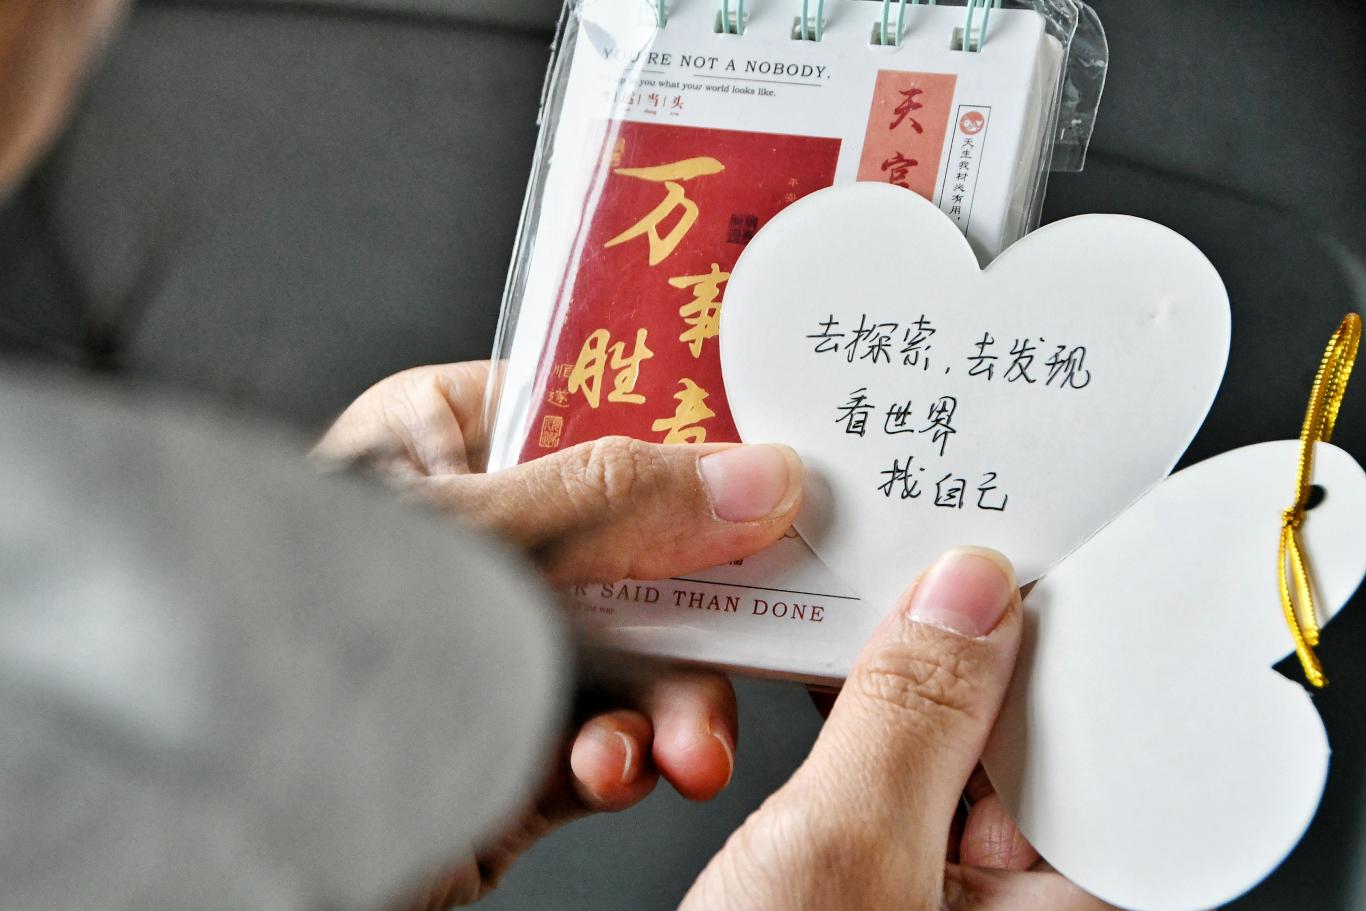 YOU'RE NOT A NOBODY.
you what your world looks like.
当 头
万事
胜意
顺遂
平安
天官
天生我材必有用
去探索,去发现
看世界
找自己
SAID THAN DONE
all the way.